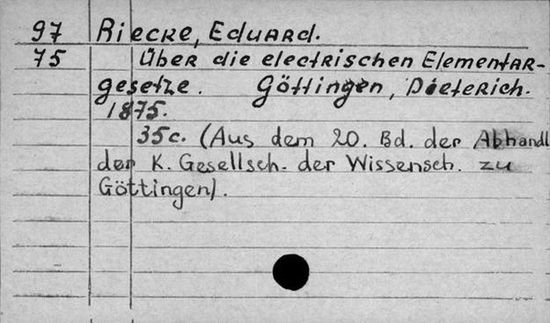 97 Riecke, Eduard.
75 Über die electrischen Elementar-
gesetze. Göttingen, Dieterich.
1875.
35c. (Aus dem 20. Bd. der Abhandl
der K. Gesellsch. der Wissensch. zu
Göttingen).